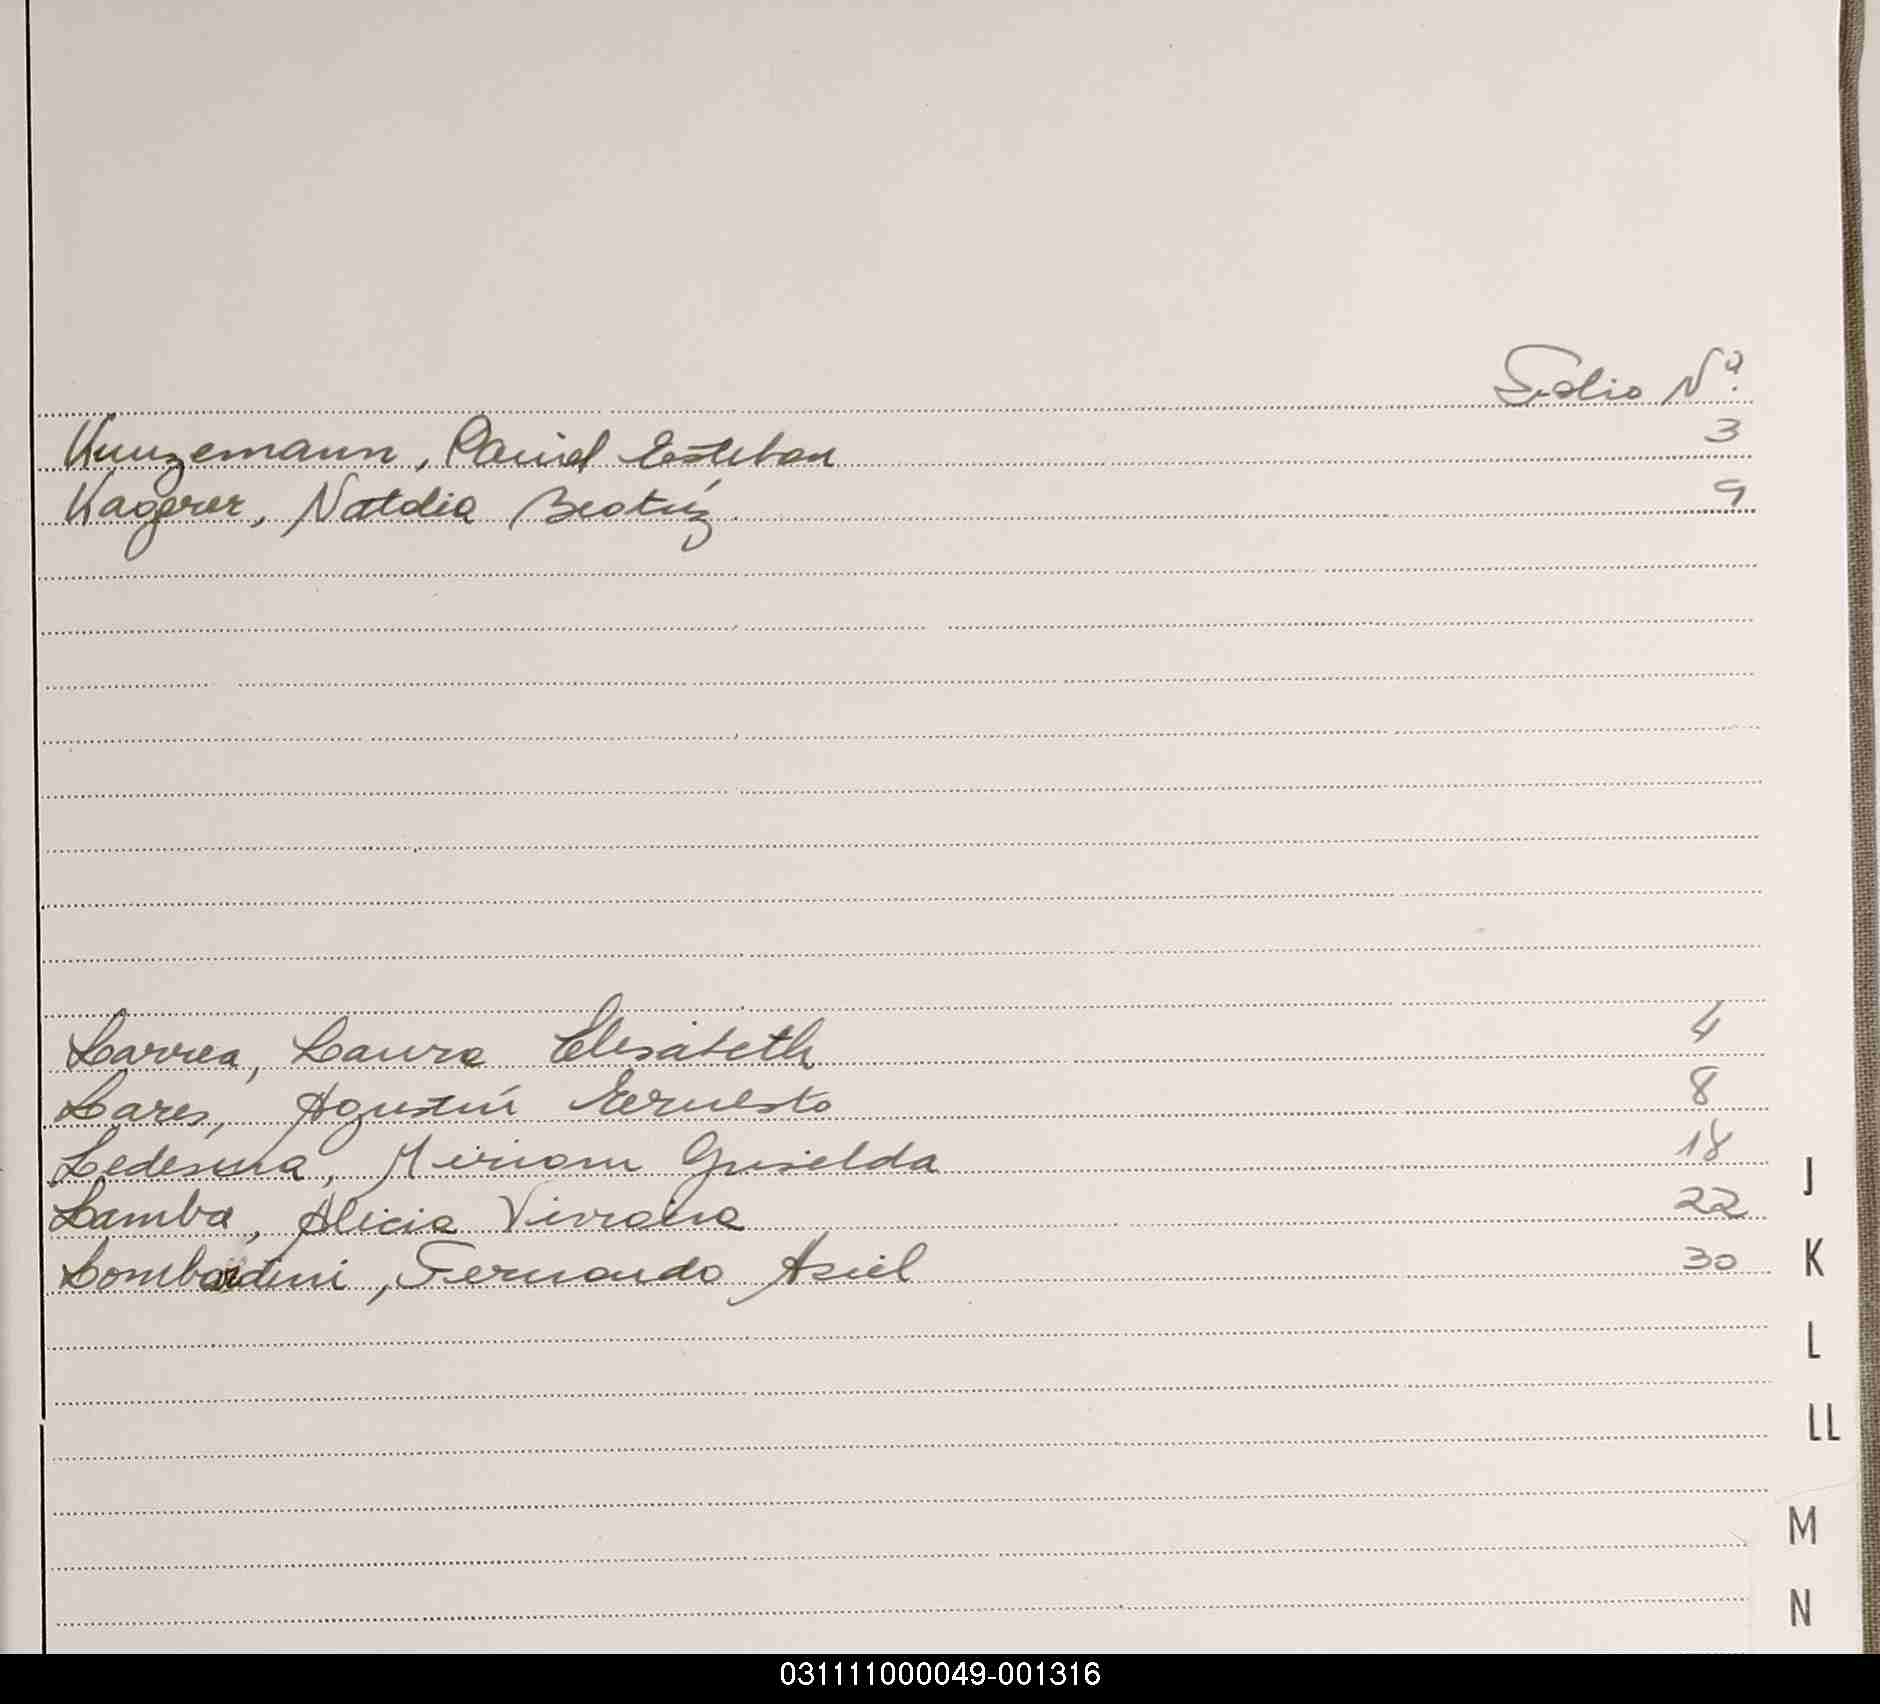 Folio Nº
Kunzemann, David Esteban 3
Kagerer, Natalia Beatríz 9
Larrea, Laura Elisabeth 4
Lares, Agustín Ernesto 8
Ledesma, Miriam Griselda 18
Lamba, Alicia Viviana 22
Lombardini, Fernando Asiel 30
J
K
L
LL
M
N
031111000049-001316